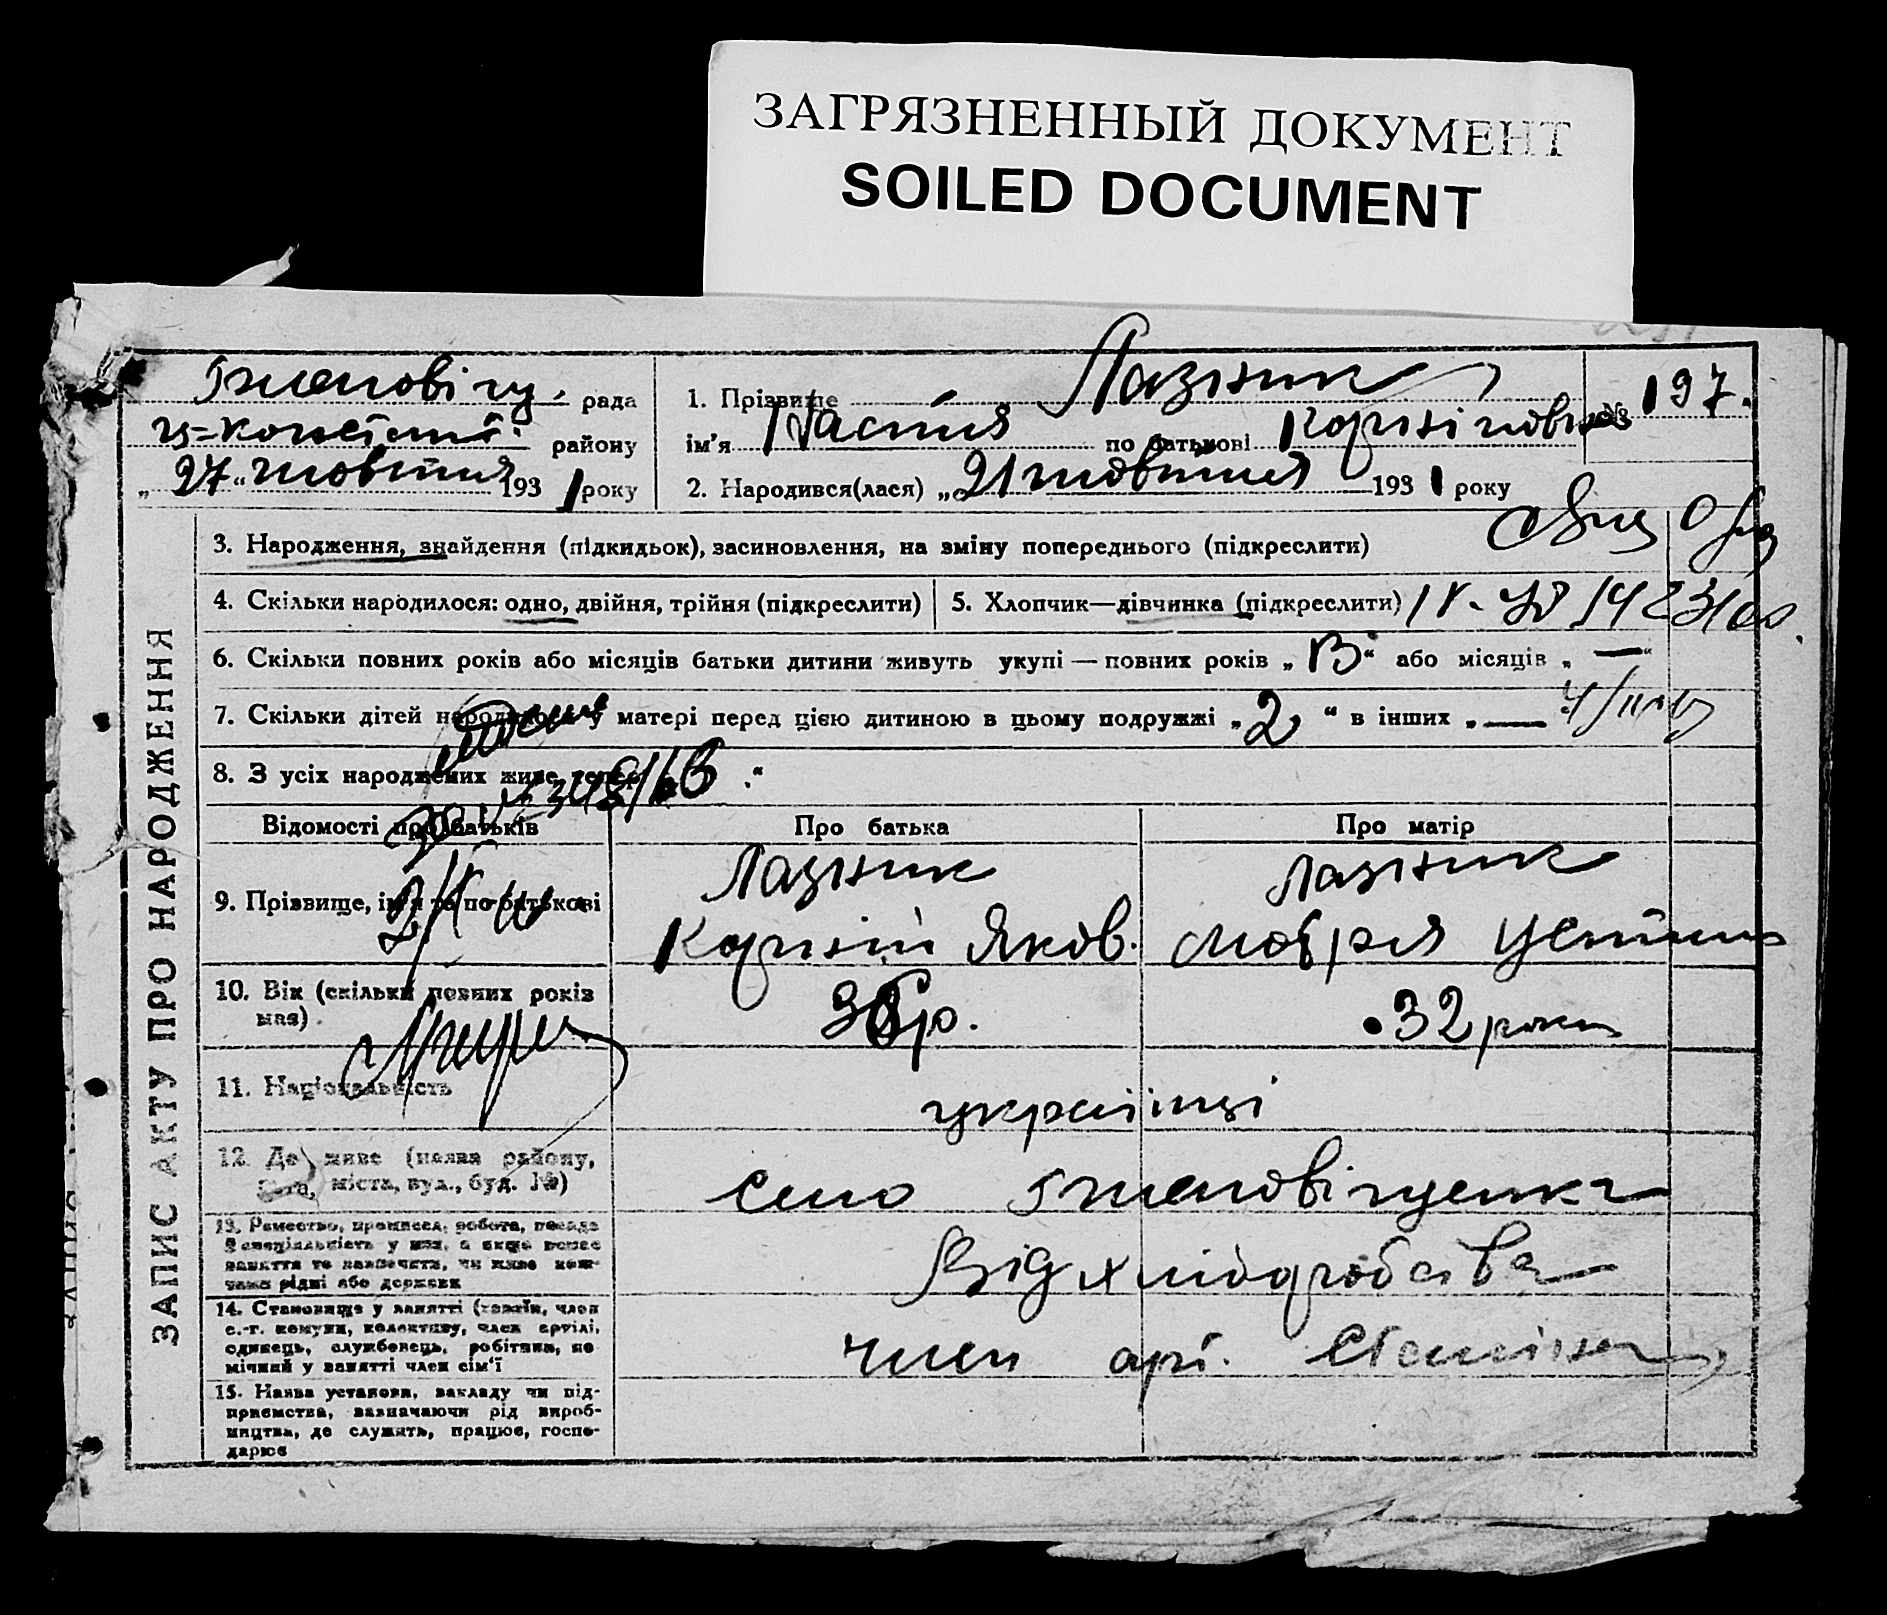 ЗАГРЯЗНЕННЫЙ ДОКУМЕНТ
SOILED DOCUMENT
рада
району
„ 27 “ жовтня 1931 року
1. Прізвище Лазник
ім'я Настія по батькові Корніївна
№ 197.
2. Народився(лася) „ 21 жовтня 1931 року
ЗАПИС АКТУ ПРО НАРОДЖЕННЯ
3. Народження, знайдення (підкидьок), засиновлення, на зміну попереднього (підкреслити)
4. Скільки народилося: одно, двійня, трійня (підкреслити)
5. Хлопчик—дівчинка (підкреслити)
6. Скільки повних років або місяців батьки дитини живуть укупі — повних років „ 13 “ або місяців „ — “
7. Скільки дітей народилося у матері перед цією дитиною в цьому подружжі „ 2 “ в інших „ —
8. З усіх народжених живе тепер
Відомості про батьків
Про батька
Про матір
9. Прізвище, ім'я та по-батькові
Лазник
Корній Яков.
Лазник
10. Вік (скільки повних років має)
р.
32 роки
11. Національність
українці
12. Де живе (назва району, села, міста, вул., буд. №)
село
13. Ремество, промисел, робота, посада
Від хліборобства
14. Становище у занятті (хазяїн, член
с.-г. комуни, колективу, член артілі,
одинець, службовець, робітник, по
мічний у занятті член сім'ї
член арт. Сталіна
15. Назва установи, закладу чи під-
приємства, зазначаючи рід вироб-
ництва, де служить, працює, госпо-
дарює